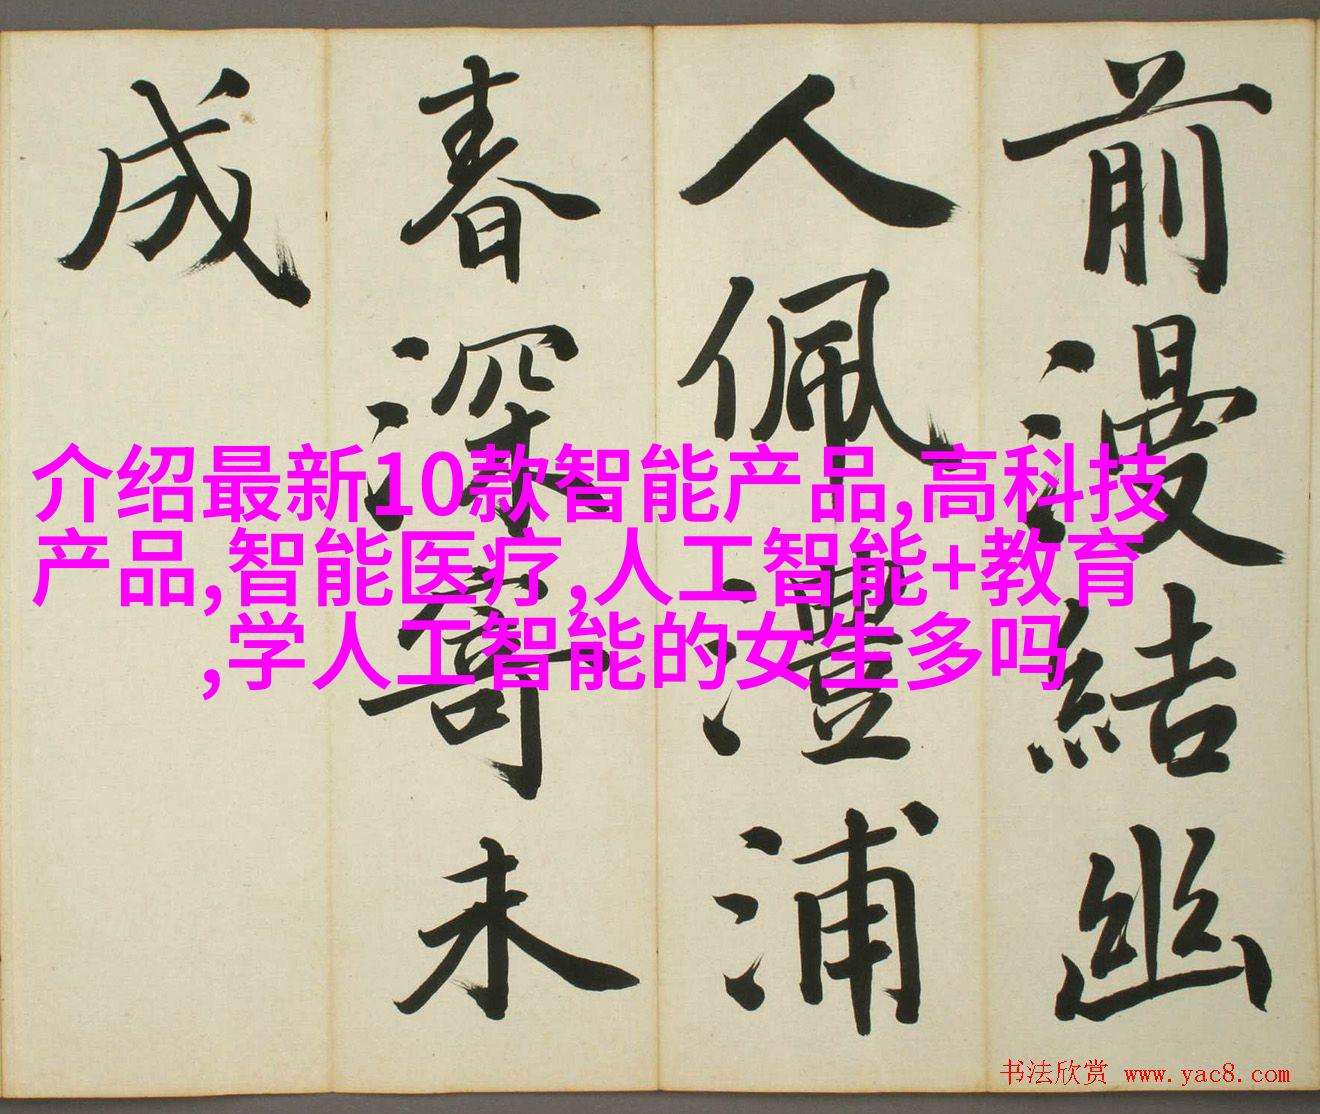 前漫結幽
人佩澧浦
春深寄未
成
介绍最新10款智能产品,高科技
产品,智能医疗,人工智能+教育
,学人工智能的女生多吗
书法欣赏 www.yac8.com